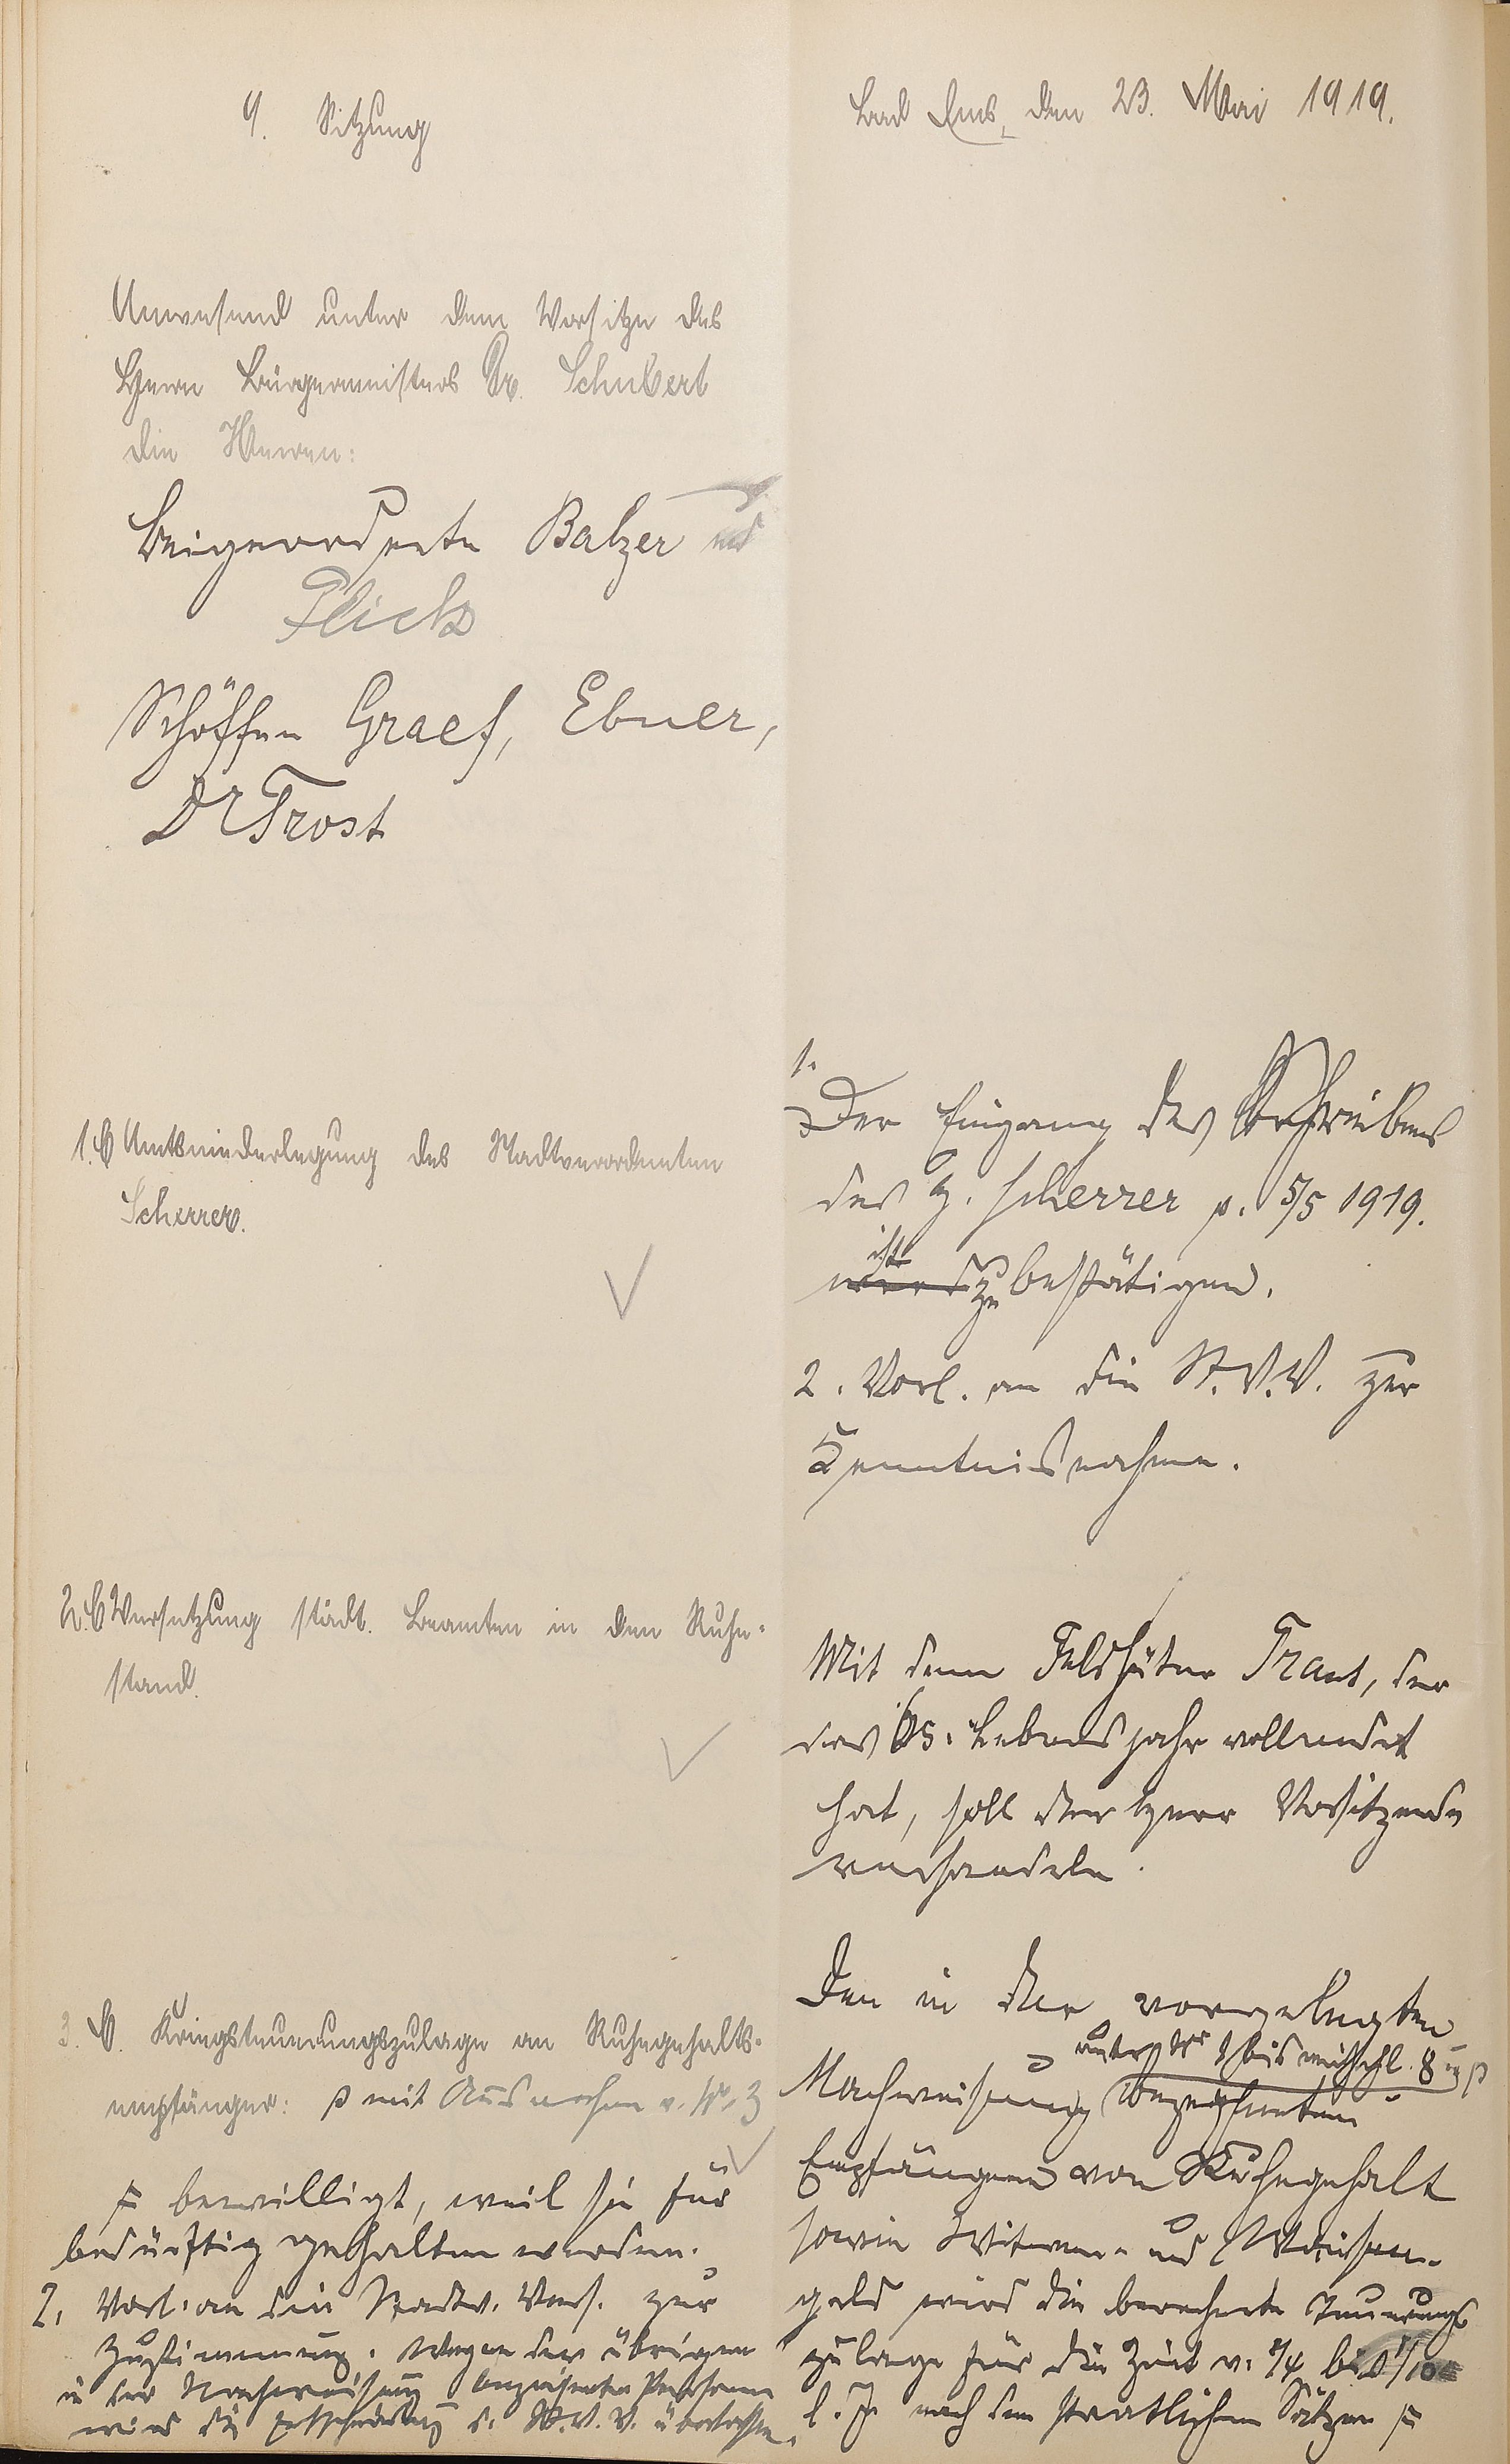 9. Sitzung
Bad Ems, den 23. Mai 1919.
Anwesend unter dem Vorsitze des
Herrn Bürgermeisters Dr. Schubert
die Herren:
Beigeordnete Balzer und
Flick
Schöffen Graef, Ebner,
Dr Trost
1. b Amtsniederlegung des Stadtverordneten
Scherrer.
1.
Der Eingang des Schreibens
des H. Scherrer v. 5/5 1919.
ist
wird zu bestätigen.
2. Vorl. an die St. V. V. zur
Kenntnisnahme.
2. b Versetzung städt. Beamten in den Ruhe-
stand.
Mit dem Feldhüter Traut, der
das 65. Lebensjahr vollendet
hat, soll der Herr Vorsitzende
verhandeln.
3. b. Kriegsteuerungszulage an Ruhegehalts-
empfänger: mit Ausnahme v. Nr. 3
bewilligt, weil sie für
bedürftig gehalten werden.
2. Vorl. an die Stadtv. Vers. zur
Zustimmung. Wegen der übrigen
in der Nachweisung bezeichneten Personen
wird die Entscheidung d. St. V. V. überlassen.
Den in der vorgelegten
unter Nr 1 bis einschl. 8
Nachweisung bezeichneten
Empfängern von Ruhegehalt
sowie Witwen- und Waisen-
geld wird die berechnete Teuerungs
zulage für die Zeit v. 1/4 bis 1/10
l. J. nach den staatlichen Sätzen